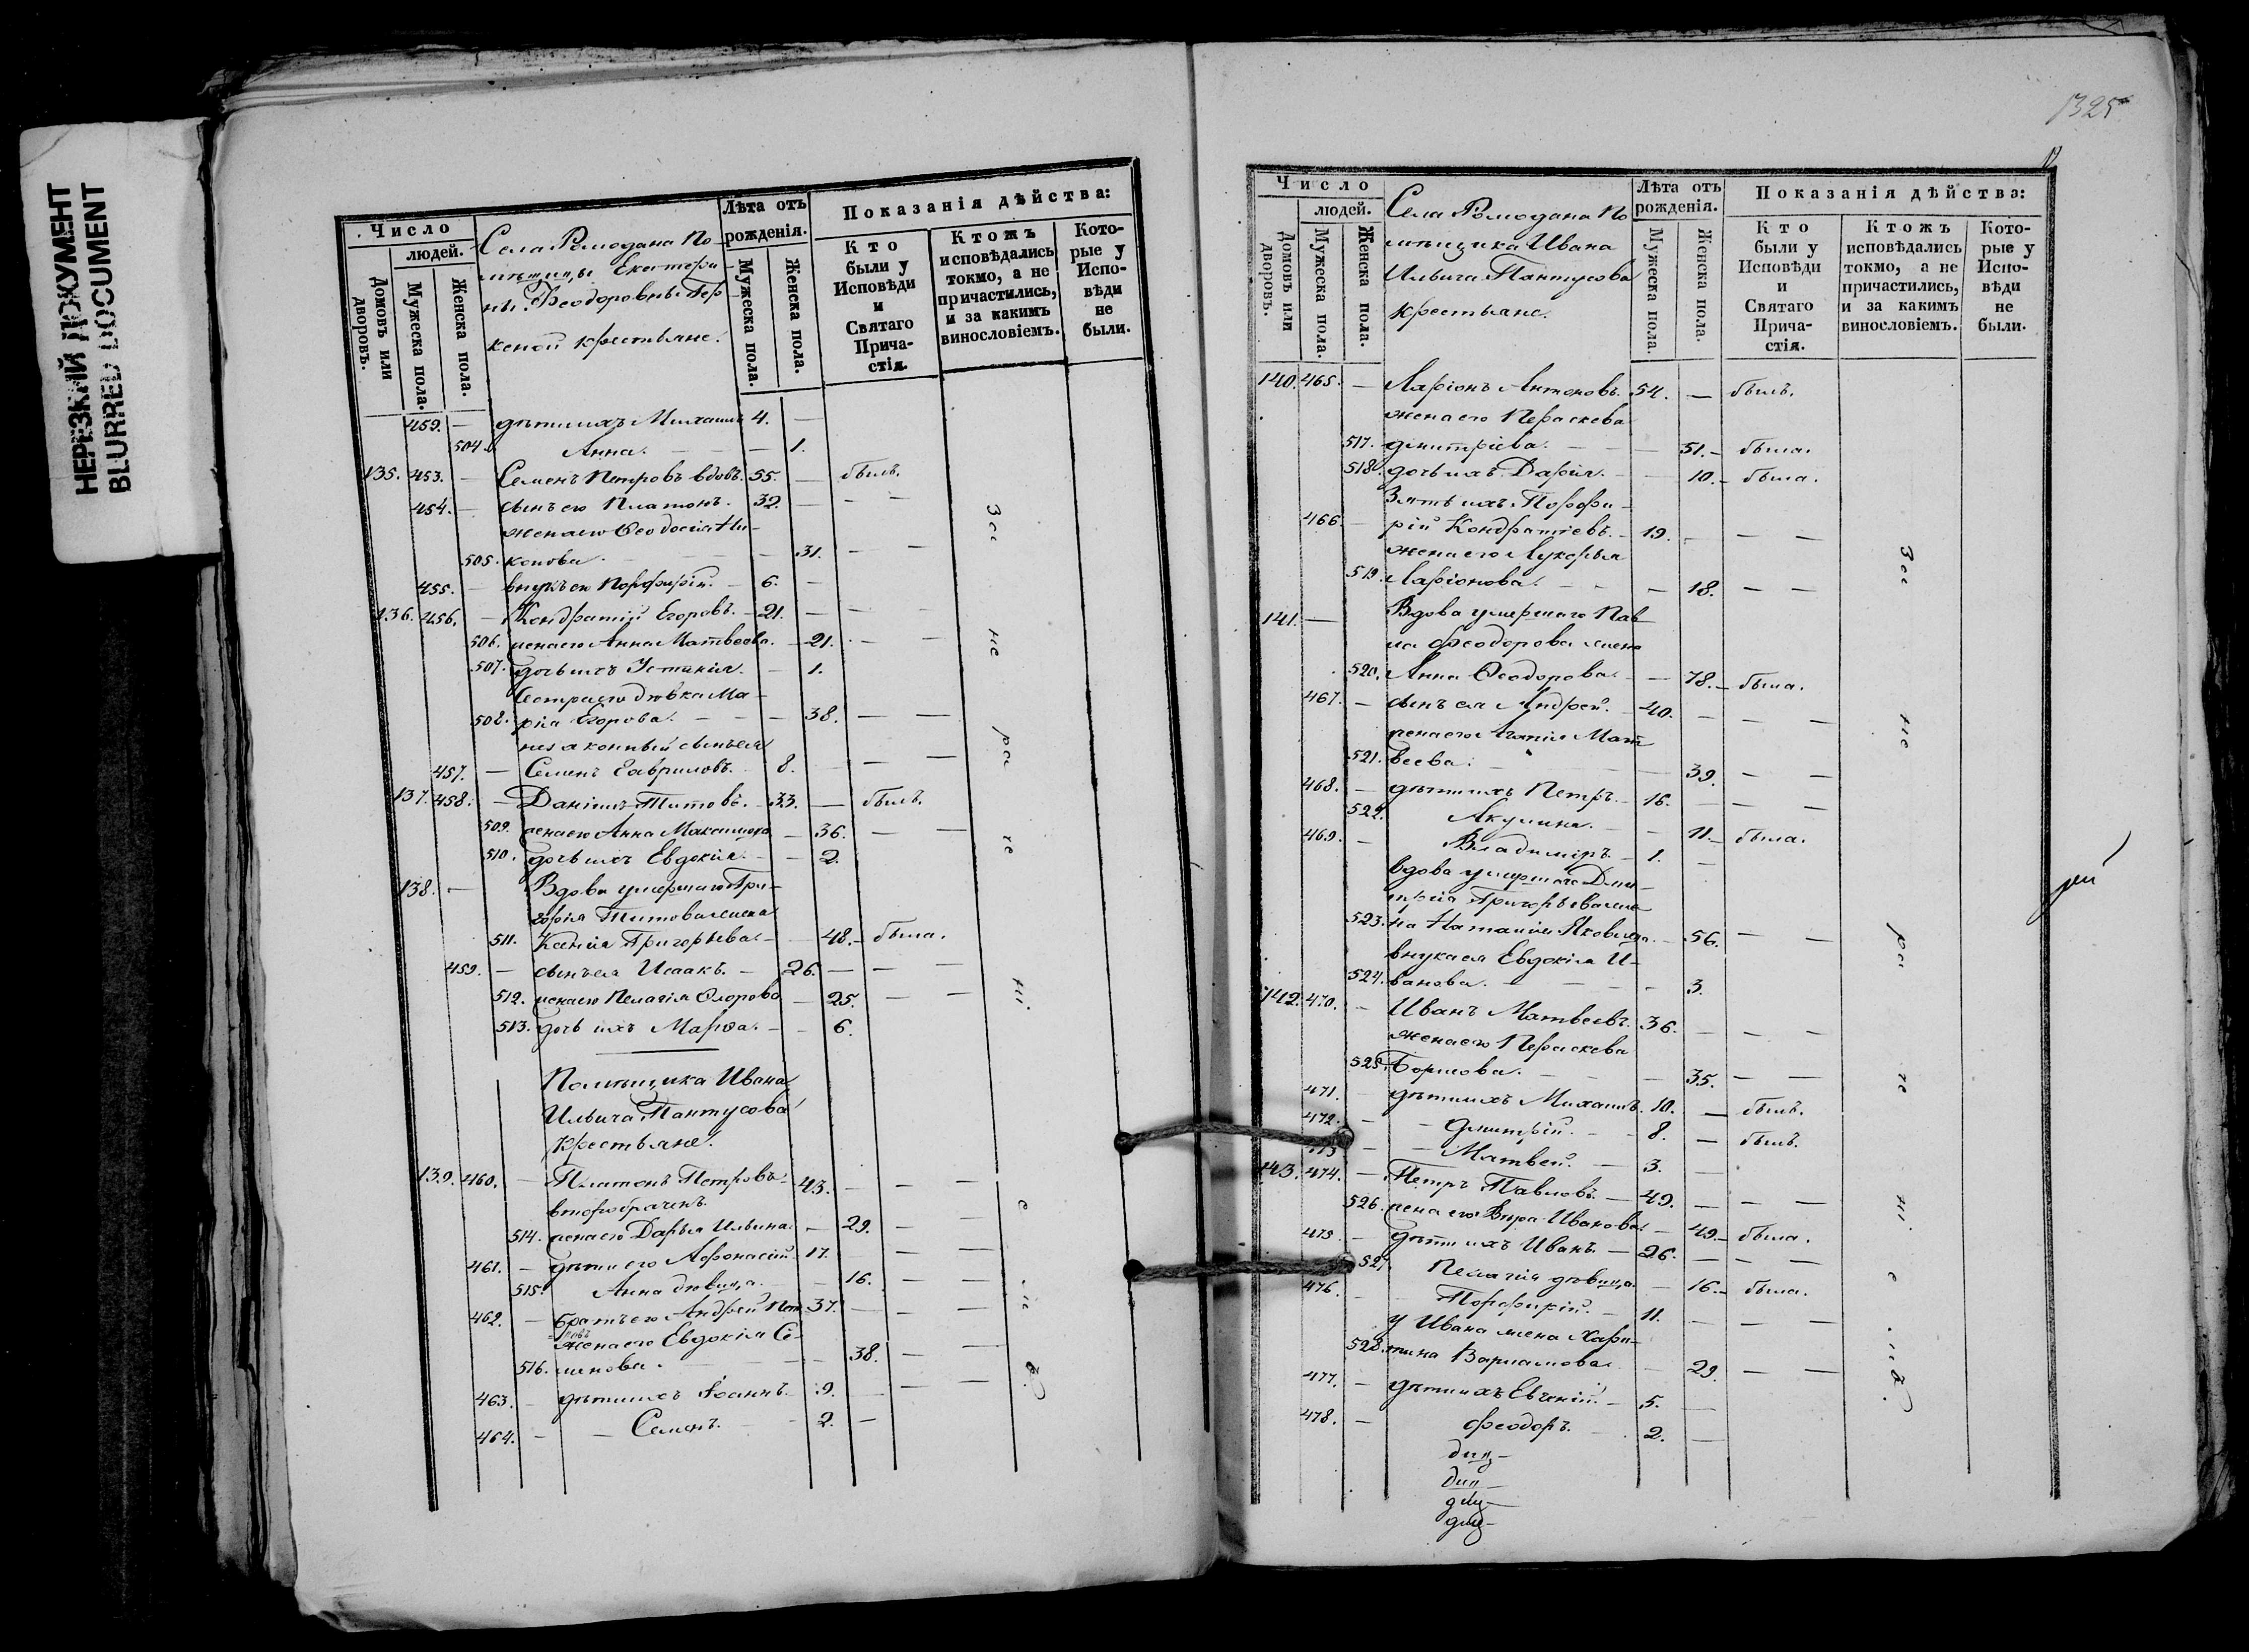 НЕРЕЗКИЙ ДОКУМЕНТ
BLURRED DOCUMENT
Число
людей.
Домовъ или дворовъ.
Мужеска пола.
Женска пола.
Села Ромодана По-
мѣщицы Екатери-
ны Ѳеодоровны
крестьяне.
Лѣта отъ
рожденія.
Мужеска пола.
Женска пола.
Показанія дѣйства:
Кто
были у
Исповѣди
и
Святаго
Прича-
стія.
Ктожъ
исповѣдались
токмо, а не
причастились,
и за какимъ
винословіемъ.
Кото-
рые у
Испо-
вѣди
не
были.
459. — дѣти ихъ Михаилъ 4. —
504. Анна. — — 1.
135. 453. — Семенъ Петровъ вдовъ. 55. — былъ.
454. — сынъ его Платонъ. 32. — — —
жена его Ѳеодосія Ни-
505. конова. — 31. — —
455. — внукъ его Порфирій. — 6. —
136. 456. — Кондратій Егоровъ. — 21. — — —
506. жена его Анна Матвеева. — 21. — —
507. дочь ихъ Устинія. — 1.
Сестра его дѣвка Ма-
508. рія Егорова. — — — 38. — —
незаконный сынъ ея
457. — Семенъ Гавриловъ. 8. — — —
137. 458. — Даніилъ Титовъ. — 33. — былъ.
509. жена его Анна Максимова — 36. — —
510. дочь ихъ Евдокія. — — 2.
138. — Вдова умершаго Гри-
горія Титова жена
511. Ксенія Григорьева. — — 48. — была.
459. — сынъ ея Исаакъ. — 26. — — —
512. жена его Пелагія Ѳедорова — 25. — —
513. дочь ихъ Марѳа. — — 6.
Помѣщика Ивана
Ильича Пантусова
крестьяне.
139. 460. — Платонъ Петровъ 43. — — —
второбраченъ.
514. жена его Дарья Ильина. — 29. — —
461. — дѣти его Афонасій. 17. — —
515. Анна дѣвица. — — 16. — —
462. — братъ его Андрей Пет- 37. — — —
ровъ
жена его Евдокія Се-
516. менова. — — 38. — —
463. — дѣти ихъ Іоаннъ. 9. — — —
464. — — Семенъ. — 2. —
За не ра че ні е мъ
1325
Число
людей.
Домовъ или дворовъ.
Мужеска пола.
Женска пола.
Села Ромодана По
мѣщика Ивана
Ильича Пантусова
крестьяне.
Лѣта отъ
рожденія.
Мужеска пола.
Женска пола.
Показанія дѣйства:
Кто
были у
Исповѣди
и
Святаго
Прича-
стія.
Ктожъ
исповѣдались
токмо, а не
причастились,
и за какимъ
винословіемъ.
Кото-
рые у
Испо-
вѣди
не
были.
140. 465. — Ларіонъ Антоновъ. 54. — былъ.
жена его Пераскева
517. дмитріева. — — 51. — была.
518. дочь ихъ Дарія. — — 10. — была.
Зять ихъ Порфи-
466. — рій Кондратіевъ. — 19. — — —
жена его Лукерья
519. Ларіонова. — — — 18. — —
141. — Вдова умершаго Пав
ла Ѳеодорова жена
520. Анна Ѳеодорова. — — 78. — была.
467. — сынъ ея Андрей. 40. — — —
жена его Агапія Мат
521. веева. — — 39. — —
468. — дѣти ихъ Петръ. — 16. — — —
522. Акулина. — — 11. — была.
469. — Владиміръ. — 1. —
вдова умершаго Дми-
трія Григорьева же
523. на Наталія Яковлева. — 56. — —
внука ея Евдокія И-
524. ванова. — — — 3.
142. 470. — Иванъ Матвеевъ. 36. — — —
жена его Пераскева
525. Борисова. — — — 35. — —
471. — дѣти ихъ Михаилъ. 10. — былъ.
472. — — дмитрій. — 8. — былъ.
473 — — Матвей. — 3. —
143. 474. — Петръ Павловъ. — 49. — — —
526. жена его Вѣра Иванова. — 49. — была.
475. — дѣти ихъ Иванъ. — 26. — — —
527. Пелагія дѣвица. — 16. — была.
476. — — Порфирій. — 11. — — —
у Ивана жена Хари-
528. тина Варламова. — 29. — —
477. — дѣти ихъ Евгеній. — 5. —
478. — Ѳеодоръ. — 2. —
За не ра че ні е мъ
рей